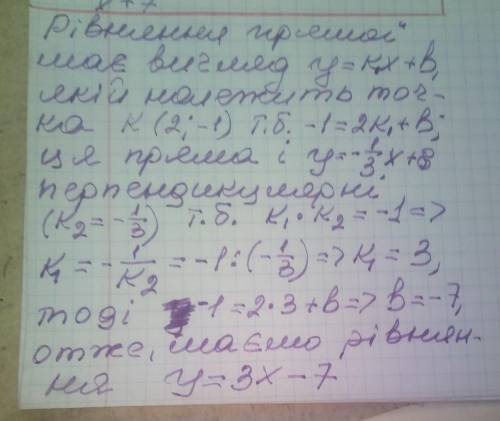 x+7
Рівняння прямої
має вигляд y=k₁x+b,
якій належить точ-
ка K(2;-1) т.б. -1=2k₁+b;
ця пряма і y=-1/3x+8
перпендикулярні
(k₂=-1/3) т.б. k₁·k₂=-1=>
k₁=-1/k₂=-1:(-1/3)=>k₁=3,
тоді -1=2·3+b=>b=-7,
отже, маємо рівнян-
ня y=3x-7